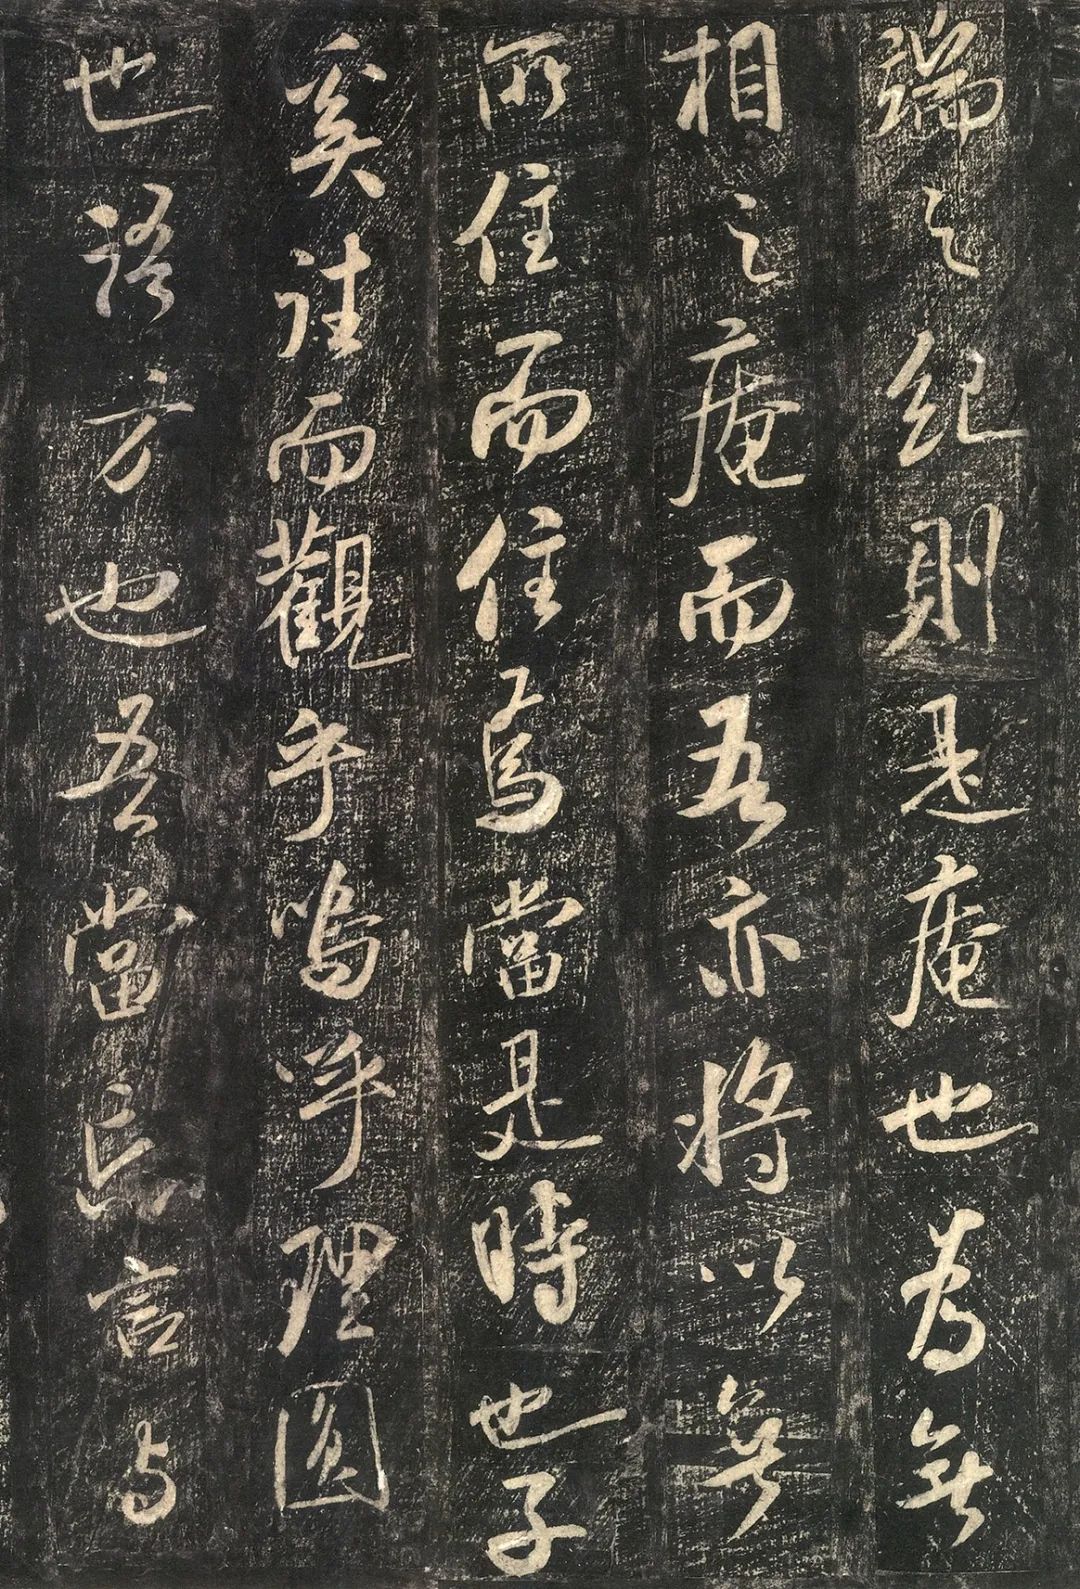 端之紀則是庵也為無
相之庵而吾亦將以無
所住而住焉當是時也子
奚往而觀乎嗚呼理圓
也語方也吾當忘言与